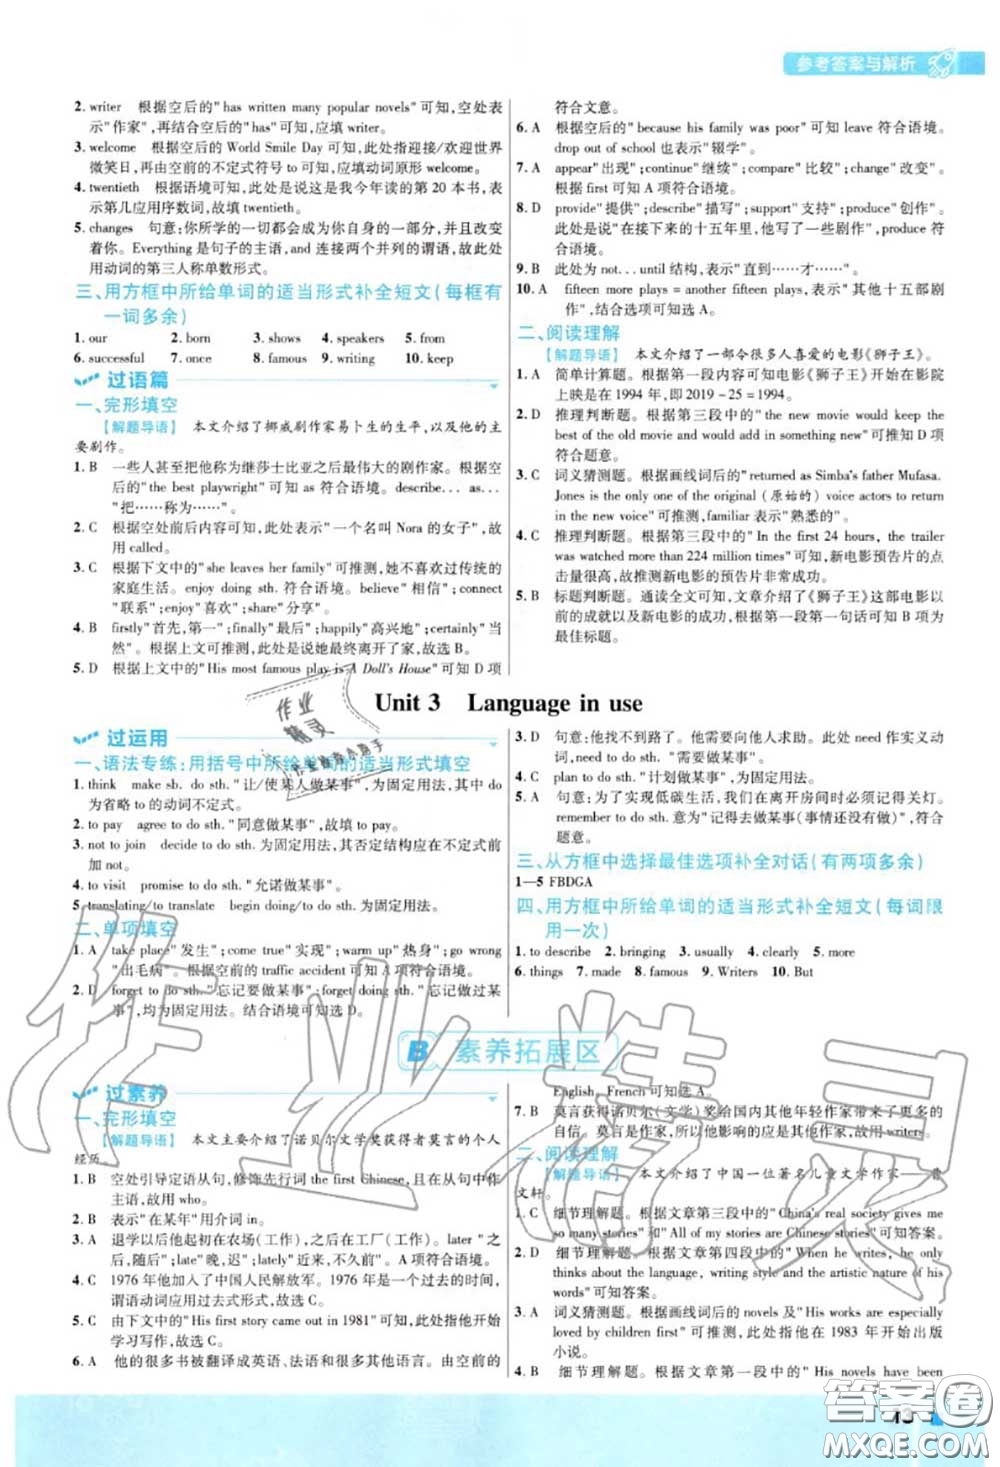 参考答案与解析
2. writer 根据空后的"has written many popular novels"可知,空处表
示"作家",再结合空后的"has"可知,应填 writer。
3. welcome 根据空后的 World Smile Day 可知,此处指迎接/欢迎世界
微笑日,再由空前的不定式符号 to 可知,应填动词原形 welcome。
4. twentieth 根据语境可知,此处是说这是我今年读的第 20 本书,表
示第几应用序数词,故填 twentieth。
5. changes 句意:你所学的一切都会成为你自身的一部分,并且改变
着你。Everything 是句子的主语,and 连接两个并列的谓语,故此处
用动词的第三人称单数形式。
三、用方框中所给单词的适当形式补全短文(每框有
一词多余)
1. our 2. born 3. shows 4. speakers 5. from
6. successful 7. once 8. famous 9. writing 10. keep
过语篇
一、完形填空
【解题导语】 本文介绍了挪威剧作家易卜生的生平,以及他的主
要剧作。
1. B 一些人甚至把他称为继莎士比亚之后最伟大的剧作家。根据空
后的"the best playwright"可知 as 符合语境。describe... as...
"把……称为……"。
2. C 根据空处前后内容可知,此处表示"一个名叫 Nora 的女子",故
用 called。
3. C 根据下文中的"she leaves her family"可推测,她不喜欢过传统的
家庭生活。enjoy doing sth. 符合语境。believe"相信";connect
"联系";enjoy"喜欢";share"分享"。
4. B firstly"首先,第一";finally"最后";happily"高兴地";certainly"当
然"。根据上文可推测,此处是说她最终离开了家,故选 B。
5. D 根据上文中的"His most famous play is A Doll's House"可知 D 项
符合文意。
6. A 根据空后的"because his family was poor"可知 leave 符合语境。
drop out of school 也表示"辍学"。
7. A appear"出现";continue"继续";compare"比较";change"改变"。
根据 first 可知 A 项符合语境。
8. D provide"提供";describe"描写";support"支持";produce"创作"。
此处是说"在接下来的十五年里,他写了一些剧作",produce 符合
语境。
9. B 此处为 not... until 结构,表示"直到……才……"。
10. A fifteen more plays = another fifteen plays,表示"其他十五部剧
作",结合选项可知选 A。
二、阅读理解
【解题导语】 本文介绍了一部令很多人喜爱的电影《狮子王》。
1. A 简单计算题。根据第一段内容可知电影《狮子王》开始在影院
上映是在 1994 年,即 2019 - 25 = 1994。
2. D 推理判断题。根据第三段中的"the new movie would keep the
best of the old movie and would add in something new"可知 D 项
符合题意。
3. C 词义猜测题。根据画线词后的"returned as Simba's father Mufasa.
Jones is the only one of the original (原始的) voice actors to return
in the new voice"可推测,familiar 表示"熟悉的"。
4. C 推理判断题。根据第三段中的"In the first 24 hours, the trailer
was watched more than 224 million times"可知,新电影预告片的点
击量很高,故推测新电影的预告片非常成功。
5. B 标题判断题。通读全文可知,文章介绍了《狮子王》这部电影以
前的成就以及新电影的成功,根据第一段第一句话可知 B 项为
最佳标题。
Unit 3 Language in use
过运用
一、语法专练:用括号中所给单词的适当形式填空
1. think make sb. do sth. "让/使某人做某事",为固定用法,其中 do
为省略 to 的动词不定式。
2. to pay agree to do sth. "同意做某事",故填 to pay。
3. not to join decide to do sth. 为固定用法,其否定结构应在不定式
前加 not。
4. to visit promise to do sth. "允诺做某事"。
5. translating/to translate begin doing/to do sth. 为固定用法。
二、单项填空
1. A take place"发生";come true"实现";warm up"热身";go wrong
"出毛病"。根据空前的 traffic accident 可知 A 项符合语境。
2. D forget to do sth. "忘记要做某事";forget doing sth. "忘记做过某
事",均为固定用法。结合语境可知选 D。
3. D 句意:他找不到路了。他需要向他人求助。此处 need 作实义动
词。need to do sth. "需要做某事"。
4. C plan to do sth. "计划做某事",为固定用法。
5. A 句意:为了实现低碳生活,我们在离开房间时必须记得关灯。
remember to do sth. 意为"记得去做某事(事情还没有做)",符合
题意。
三、从方框中选择最佳选项补全对话(有两项多余)
1—5 FBDGA
四、用方框中所给单词的适当形式补全短文(每词限
用一次)
1. to describe 2. bringing 3. usually 4. clearly 5. more
6. things 7. made 8. famous 9. Writers 10. But
B 素养拓展区
过素养
一、完形填空
【解题导语】 本文主要介绍了诺贝尔文学奖获得者莫言的个人
经历。
1. B 空处引导定语从句,修饰先行词 the first Chinese,且在从句中作
主语,故用 who。
2. B 表示"在某年"用介词 in。
3. A 退学以后他起初在农场(工作),之后在工厂(工作)。later"之
后";late"晚,迟";lately"近来,不久前"。A 项符合语境。
4. C 1976 年他加入了中国人民解放军。1976 年是一个过去的时间,
谓语动词应用过去式形式,故选 C。
5. C 由下文中的"His first story came out in 1981"可知,此处指他开始
学习写作,故选 C。
6. A 他的很多书被翻译成英语、法语和很多其他语言。由空前的
English, French 可知选 A。
7. B 莫言获得诺贝尔(文学)奖给国内其他年轻作家带来了更多的
自信。莫言是作家,所以他影响的应该是其他作家,故用 writers。
二、阅读理解
【解题导语】 本文介绍了中国一位著名儿童文学作家——曹
文轩。
1. C 细节理解题。根据文章第三段中的"China's real society gives me
so many stories"和"All of my stories are Chinese stories"可知答案。
2. D 细节理解题。根据文章第四段中的"When he writes, he only
thinks about the language, writing style and the artistic nature of his
words"可知答案。
3. A 词义猜测题。根据画线词后的 novels 及"His works are especially
loved by children first"可推测,此处指他于 1983 年开始出版
小说。
4. B 细节理解题。根据文章第一段中的"His novels have been
13
作业精灵
答案圈
MXQE.COM